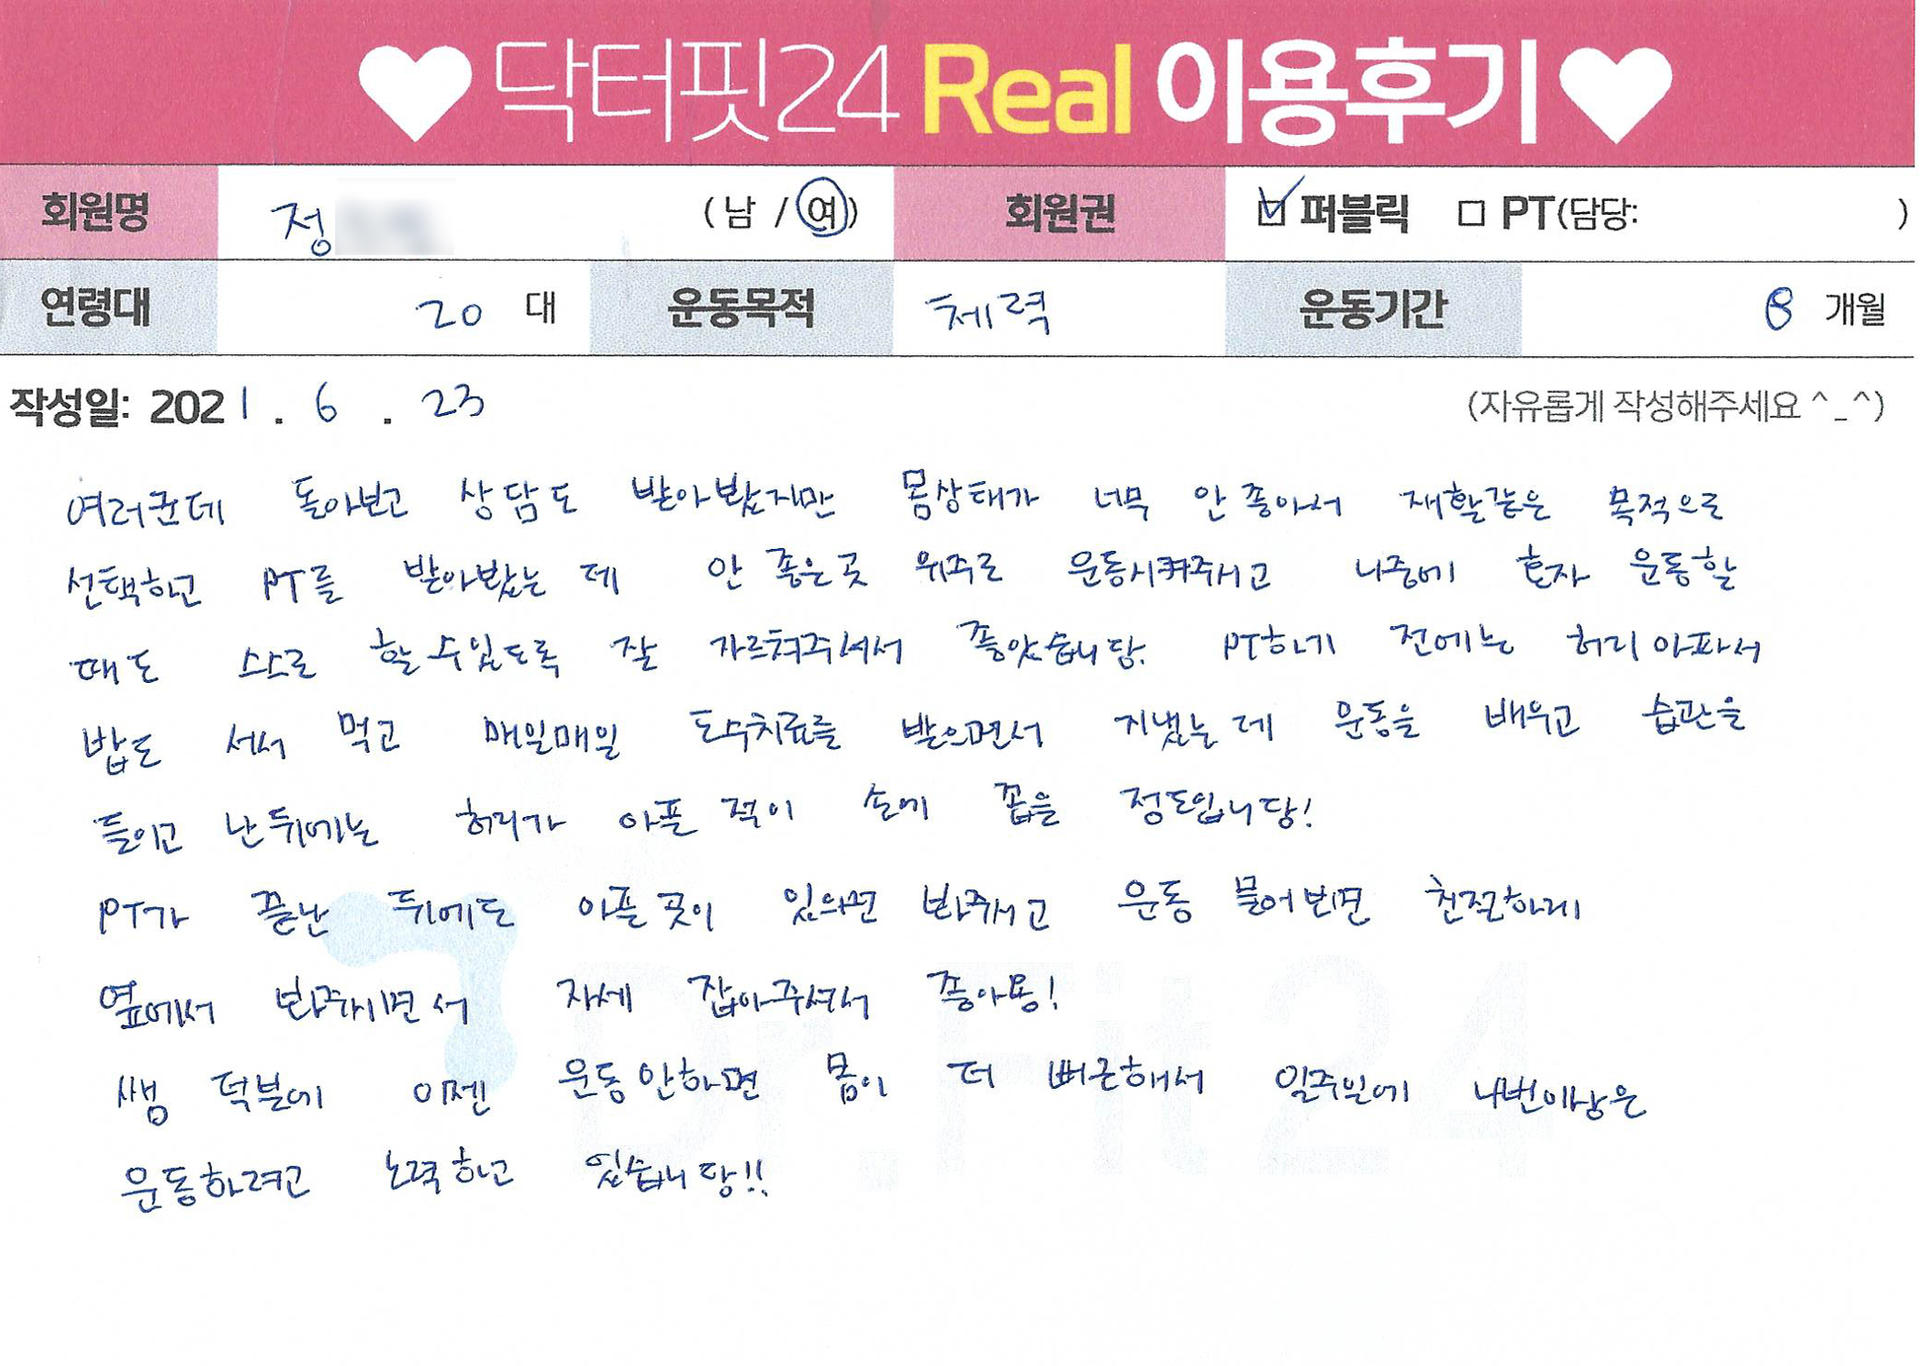 닥터핏24 Real 이용후기
회원명 정 (남 / 여) 회원권 ☑ 퍼블릭 □ PT(담당: )
연령대 20 대 운동목적 체력 운동기간 8 개월
작성일: 2021 . 6 . 23 (자유롭게 작성해주세요 ^_^)
여러군데 돌아보고 상담도 받아봤지만 몸상태가 너무 안 좋아서 재활같은 목적으로
선택하고 PT를 받아봤는데 안 좋은곳 위주로 운동시켜주시고 나중에 혼자 운동할
때도 스스로 할 수 있도록 잘 가르쳐주셔서 좋았습니당. PT하기 전에는 허리 아파서
밥도 서서 먹고 매일매일 도수치료를 받으면서 지냈는데 운동을 배우고 습관을
들이고 난 뒤에는 허리가 아플 적이 손에 꼽을 정도입니당!
PT가 끝난 뒤에도 아픈 곳이 있으면 봐주시고 운동 물어보면 친절하게
옆에서 봐주시면서 자세 잡아주셔서 좋아용!
쌤 덕분에 이젠 운동안하면 몸이 더 뻐근해서 일주일에 네번이상은
운동하려고 노력하고 있습니당!!
Dr.Fit 24